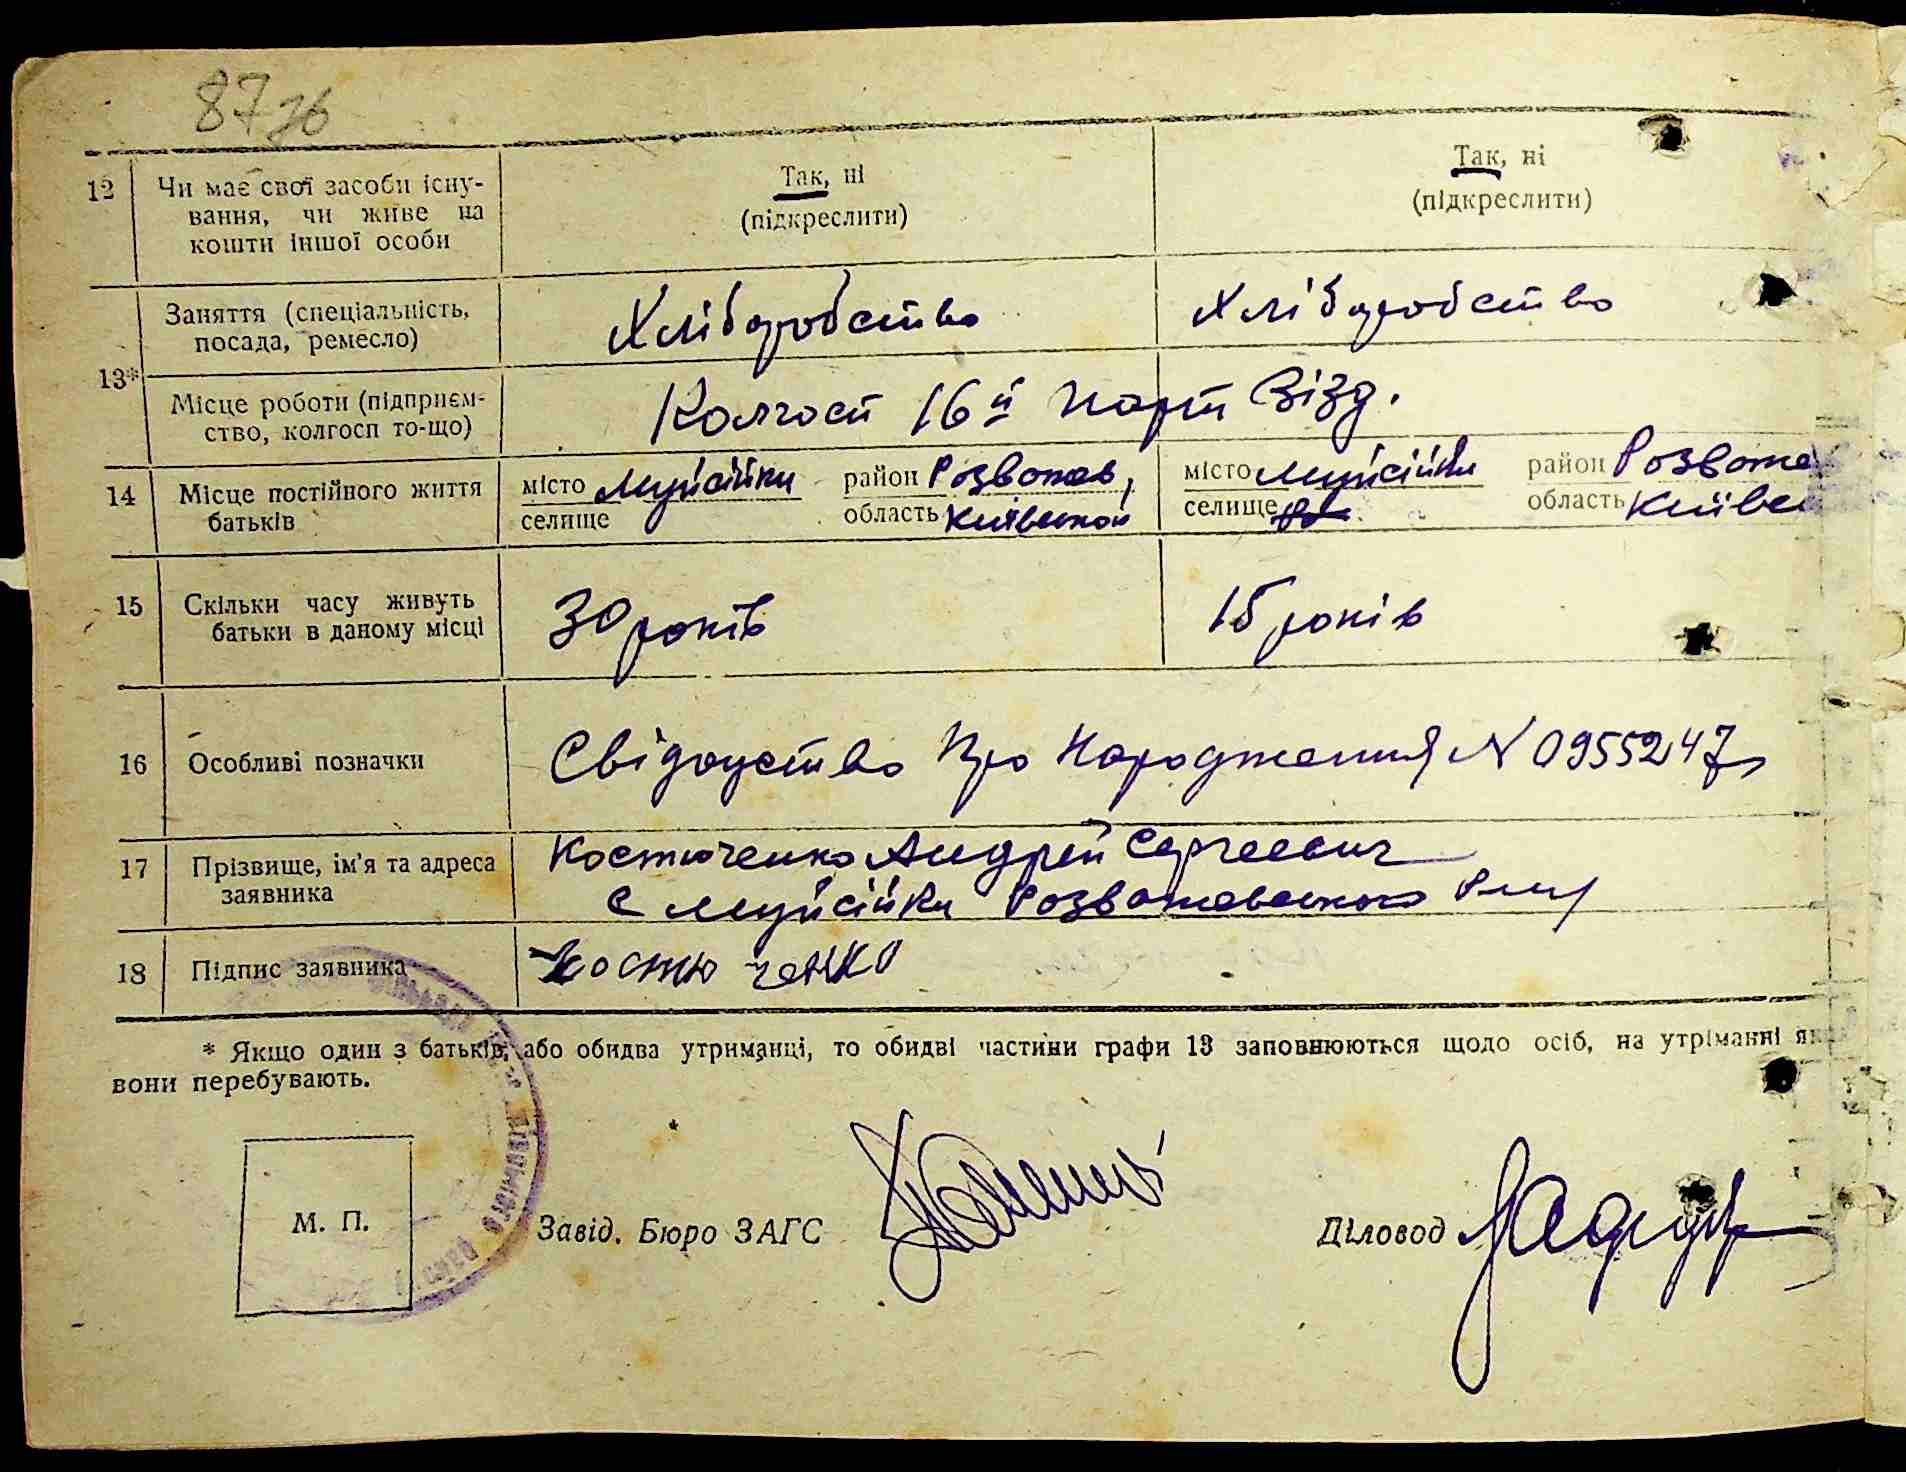 87зв
12 Чи має свої засоби існу-
вання, чи живе на
кошти іншої особи
Так, ні
(підкреслити)
Так, ні
(підкреслити)
13*
Заняття (спеціальність,
посада, ремесло)
Хліборобство
Хліборобство
Місце роботи (підприєм-
ство, колгосп то-що)
Колгосп 16й Парт Візд.
14 Місце постійного життя
батьків
місто Мусійки район Розважев,
селище область Київської
місто Мусійки район Розваже
селище область Київсь
15 Скільки часу живуть
батьки в даному місці
30 років
15 років
16 Особливі позначки
Свідоцтво Про Народження N 0955247
17 Прізвище, ім'я та адреса
заявника
Костюченко Андрій Сергеевич
с Мусійки Розважевського
18 Підпис заявника
Костюченко
* Якщо один з батьків, або обидва утриманці, то обидві частини графи 13 заповнюються щодо осіб, на утріманні як
вони перебувають.
М. П.
Завід. Бюро ЗАГС
Діловод